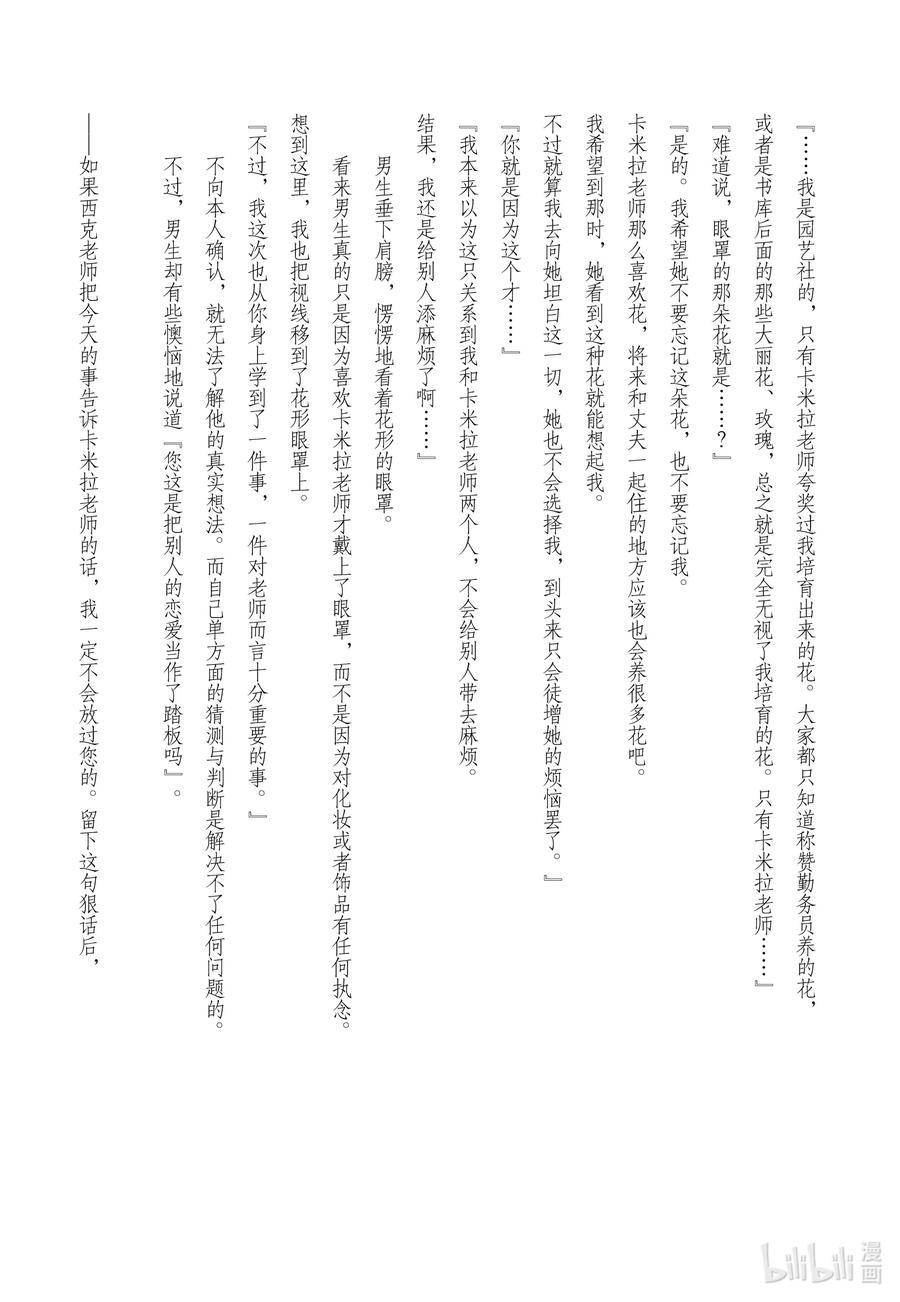 『……我是园艺社的，只有卡米拉老师夸奖过我培育出来的花。大家都只知道称赞勤务员养的花，
或者是书库后面的那些大丽花、玫瑰，总之就是完全无视了我培育的花。只有卡米拉老师……』
『难道说，眼罩的那朵花就是……？』
『是的。我希望她不要忘记这朵花，也不要忘记我。
卡米拉老师那么喜欢花，将来和丈夫一起住的地方应该也会养很多花吧。
我希望到那时，她看到这种花就能想起我。
不过就算我去向她坦白这一切，她也不会选择我，到头来只会徒增她的烦恼罢了。』
『你就是因为这个才……』
『我本来以为这只关系到我和卡米拉老师两个人，不会给别人带去麻烦。
结果，我还是给别人添麻烦了啊……』
男生垂下肩膀，愣愣地看着花形的眼罩。
看来男生真的只是因为喜欢卡米拉老师才戴上了眼罩，而不是因为对化妆或者饰品有任何执念。
想到这里，我也把视线移到了花形眼罩上。
『不过，我这次也从你身上学到了一件事，一件对老师而言十分重要的事。』
不向本人确认，就无法了解他的真实想法。而自己单方面的猜测与判断是解决不了任何问题的。
不过，男生却有些懊恼地说道『您这是把别人的恋爱当作了踏板吗』。
——如果西克老师把今天的事告诉卡米拉老师的话，我一定不会放过您的。留下这句狠话后，
bilibili 漫画